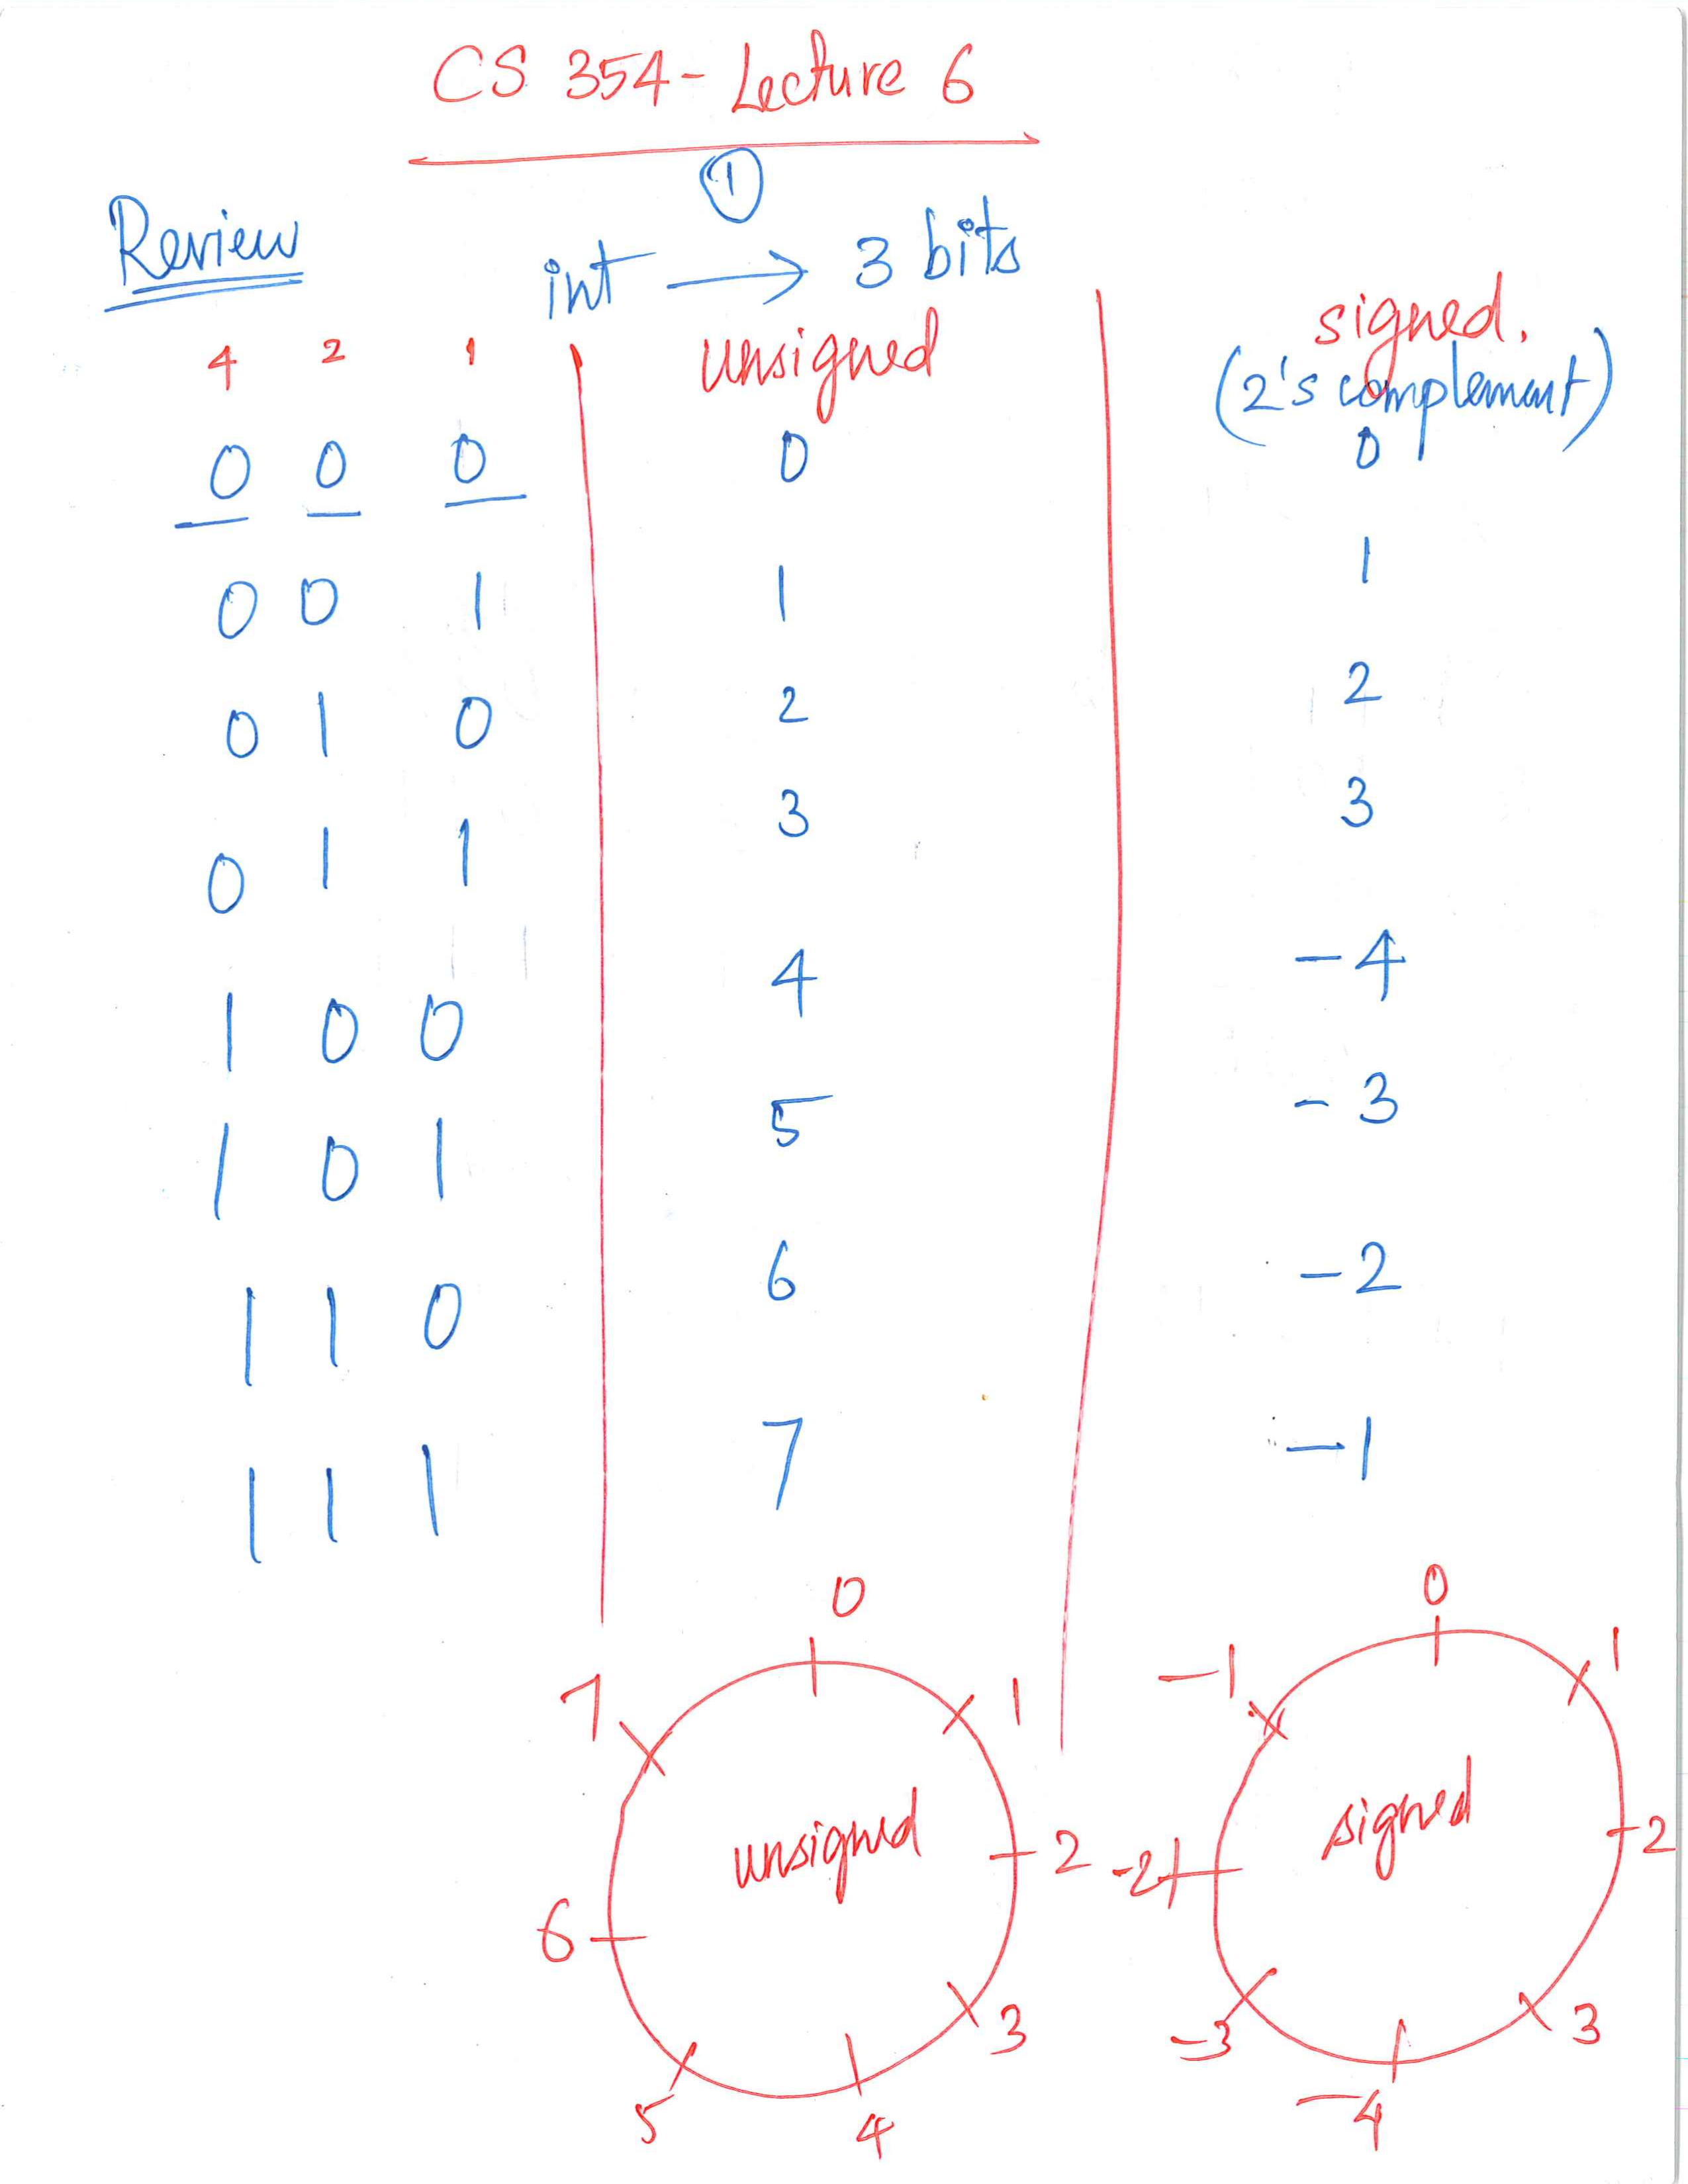 CS 354 - Lecture 6
1
Review
int → 3 bits
4 2 1 unsigned signed.
(2's complement)
0 0 0 0 0
0 0 1 1 1
0 1 0 2 2
0 1 1 3 3
1 0 0 4 -4
1 0 1 5 -3
1 1 0 6 -2
1 1 1 7 -1
0
1
2
3
4
5
6
7
unsigned
0
1
2
3
-4
-3
-2
-1
signed